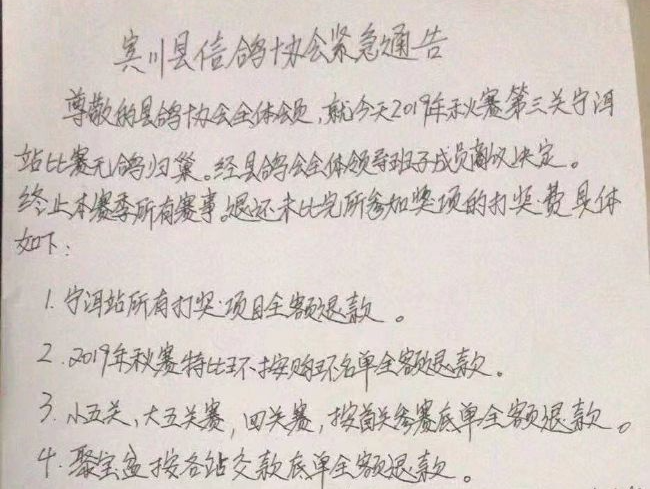 宾川县信鸽协会紧急通告
尊敬的县鸽协会全体会员，就今天2019年秋赛第三关宁洱
站比赛无鸽归巢。经县鸽会全体领导班子成员商议决定。
终止本赛季所有赛事。退还未比完所参加奖项的打奖费具体
如下：
1. 宁洱站所有打奖项目全额退款。
2. 2019年秋赛特比环按购环名单全额退款。
3. 小五关、大五关赛，四关赛，按首关参赛底单全额退款。
4. 聚宝盆按各站交款底单全额退款。